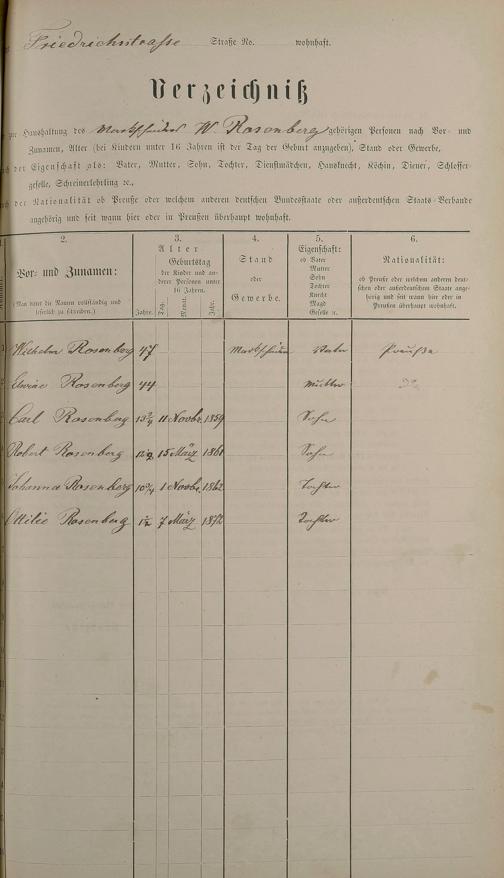 Friedrichstrasse Straße No. wohnhaft.
Verzeichniß
zur Haushaltung des Markscheider W. Rosenberg gehörigen Personen nach Vor- und
Zunamen, Alter (bei Kindern unter 16 Jahren ist der Tag der Geburt anzugeben), Stand oder Gewerbe,
der Eigenschaft als: Vater, Mutter, Sohn, Tochter, Dienstmädchen, Hausknecht, Köchin, Diener, Schlosser-
geselle, Schreinerlehrling ꝛc.,
der Nationalität ob Preuße oder welchem anderen deutschen Bundesstaate oder außerdeutschen Staats-Verbande
angehörig und seit wann hier oder in Preußen überhaupt wohnhaft.
2. 3. 4. 5. 6.
Vor- und Zunamen:
(Man bittet die Namen vollständig und
leserlich zu schreiben.)
Alter
Jahre.
Geburtstag
der Kinder und an-
derer Personen unter
16 Jahren.
Tag. Monat. Jahr.
Stand
oder
Gewerbe.
Eigenschaft:
ob Vater
Mutter
Sohn
Tochter
Knecht
Magd
Geselle ꝛc.
Nationalität:
ob Preuße oder welchem anderen deut-
schen oder außerdeutschen Staate ange-
hörig und seit wann hier oder in
Preußen überhaupt wohnhaft.
Wilhelm Rosenberg 47 Markscheider Vater Preuße
Rosenberg 44 Mutter
Carl Rosenberg 13¾ 11 Novbr. 1859 Sohn
Robert Rosenberg 15 März 1861 Sohn
Johanna Rosenberg 10¾ 1 Novbr. 1862 Tochter
Ottilie Rosenberg 1½ 7 März 1872 Tochter